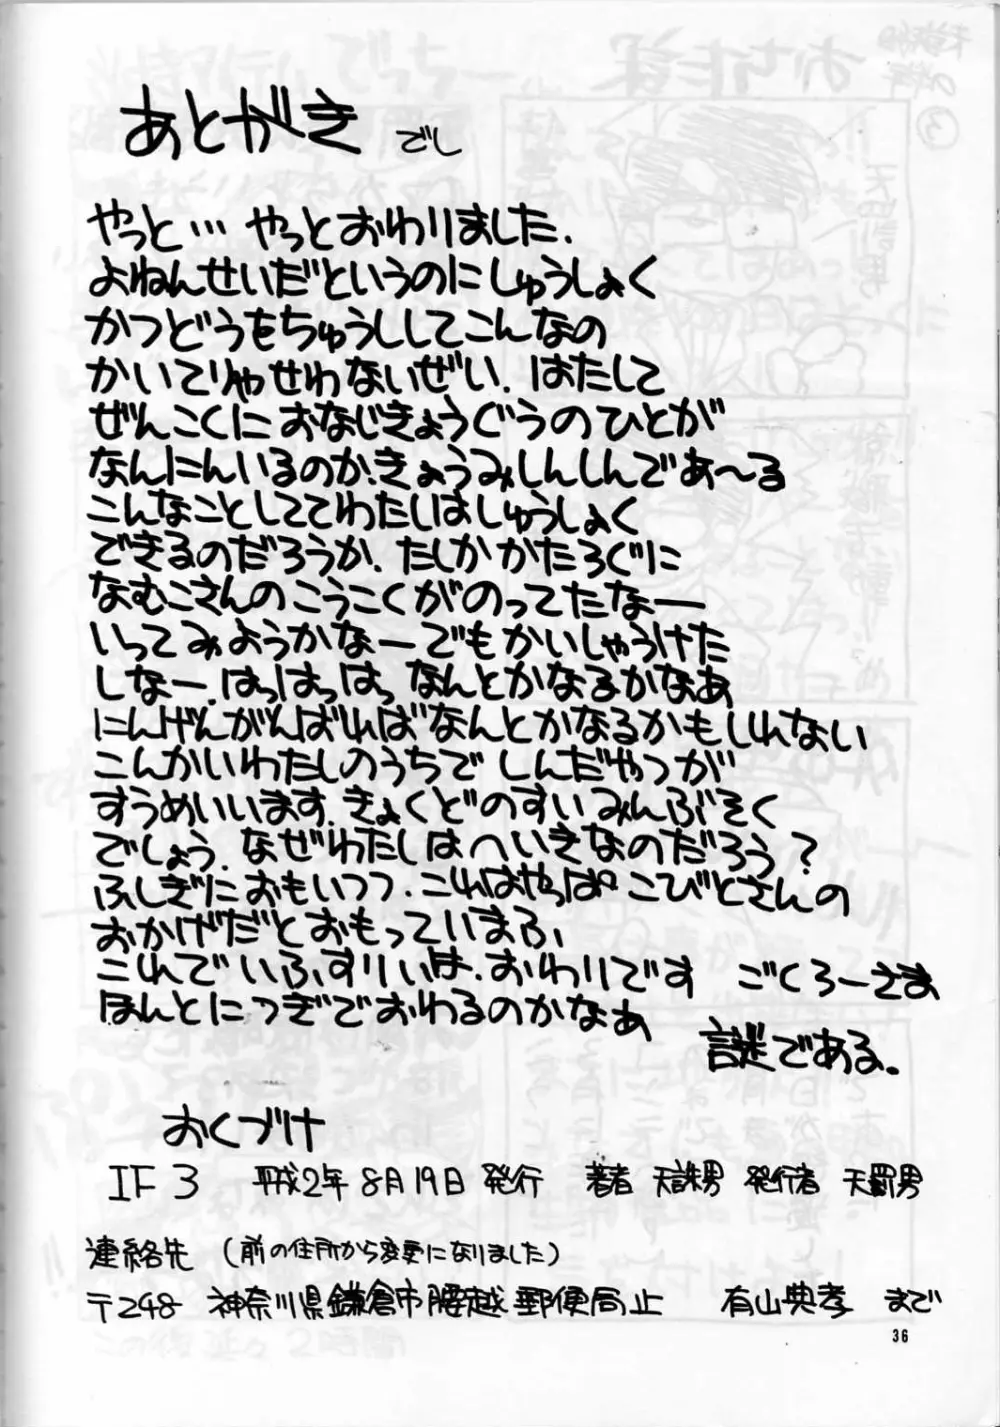 あとがき でし
やっと… やっとおわりました.
よねんせいだというのにしゅうしょく
かつどうをちゅうししてこんなの
かいてりゃせわないぜい. はたして
ぜんこくにおなじきょうぐうのひとが
なんにんいるのか.きょうみしんしんであ〜る
こんなことしててわたしはしゅうしょく
できるのだろうか. たしかかたろぐに
なむこさんのこうこくがのってたなー
いってみようかなーでもかいしゃうけた
しなー. はっはっはっ なんとかなるかなあ
にんげんがんばればなんとかなるかもしれない
こんかいわたしのうちでしんだやつが
すうめいいます.きょくどのすいみんぶそく
でしょう. なぜわたしはへいきなのだろう?
ふしぎにおもいつつ. これはやっぱこびとさんの
おかげだとおもっていまふ
これでいふすりぃは.おわりです ごくろーさま
ほんとにつぎでおわるのかなぁ
謎である.
おくづけ
IF 3 平成2年 8月19日 発行 著者 天誅男 発行者 天罰男
連絡先 (前の住所から変更になりました)
〒248 神奈川県鎌倉市腰越郵便局止 有山典孝 まで
36